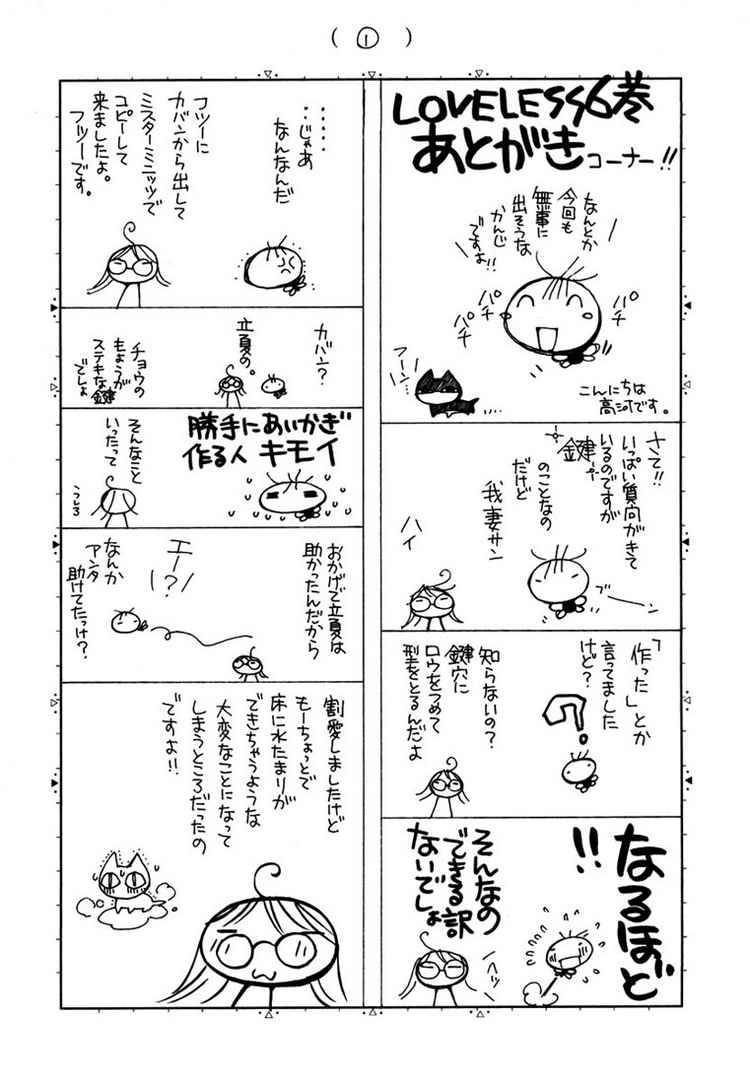 (①)
LOVELESS6巻
あとがきコーナー!!
なんとか
今回も
無事に
出そうな
かんじ
ですよ!!
パチ
パチ
パチ
フーン…
こんにちは
高河です。
さて!!
いっぱい質問がきて
いるのですが
鍵
のことなの
だけど
我妻サン
ハイ
ブーン
「作った」とか
言ってました
けど?
?
知らないの?
鍵穴に
ロウをつめて
型をとるんだよ
なるほど
!!
そんなの
できる訳
ないでしょ
ヘッ
……じゃあ
なんなんだ
フツーに
カバンから出して
ミスターミニッツで
コピーして
来ましたよ。
フツーです。
カバン?
立夏の。
チョウの
もようが
ステキな鍵
でしょ
勝手にあいかぎ
作る人 キモイ
そんなこと
いったって
うしろ
おかげで立夏は
助かったんだから
エー
!?
なんか
アンタ
助けてたっけ?
割愛しましたけど
もーちょっとで
床に水たまりが
できちゃうような
大変なことになって
しまうところだったの
ですよ!!